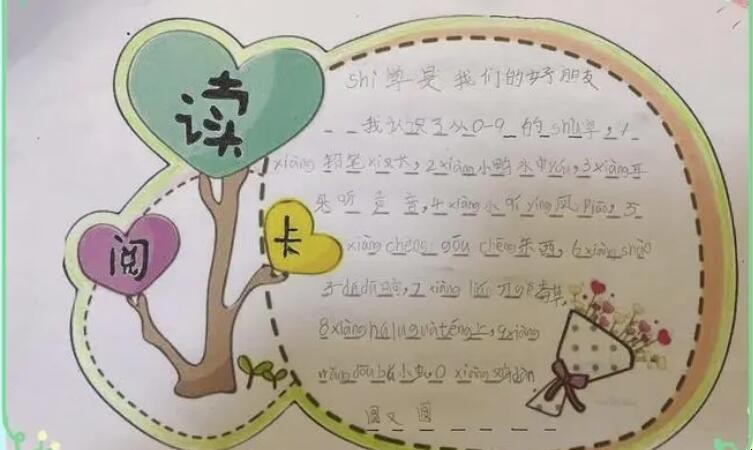 阅
读
卡
shì 学是我们的好朋友
我认识了从0-9的shù字,1
xiàng铅笔xì又长,2xiàng小鸭水中yóu,3xiàng耳
朵听音,4xiàng小 yíng风piāo,5
xiàng chēng gōu chēng东西,6xiàng shào
子dūdū响,7xiàng 刀gē草,
8xiàng húlu guà téng上,9xiàng
dòu bǎn小虫,0 xiàng鸡dàn
圆又圆